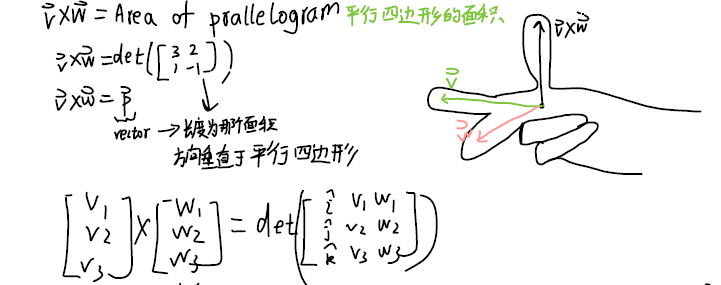 v⃗×w⃗ = Area of prallelogram 平行四边形的面积
v⃗×w⃗ = det([3 2
1 -1])
v⃗×w⃗ = p⃗
vector → 长度为那个面积
方向垂直于平行四边形
v⃗×w⃗
v⃗
w⃗
[v1 v2 v3] × [w1 w2 w3] = det([î v1 w1
ĵ v2 w2
k̂ v3 w3])